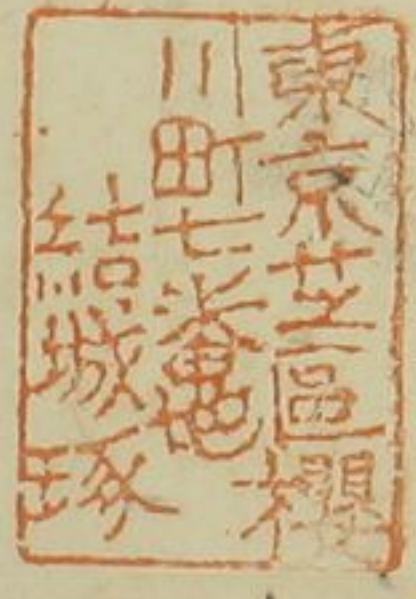 東京芝區櫻
川町七番地
結城琢